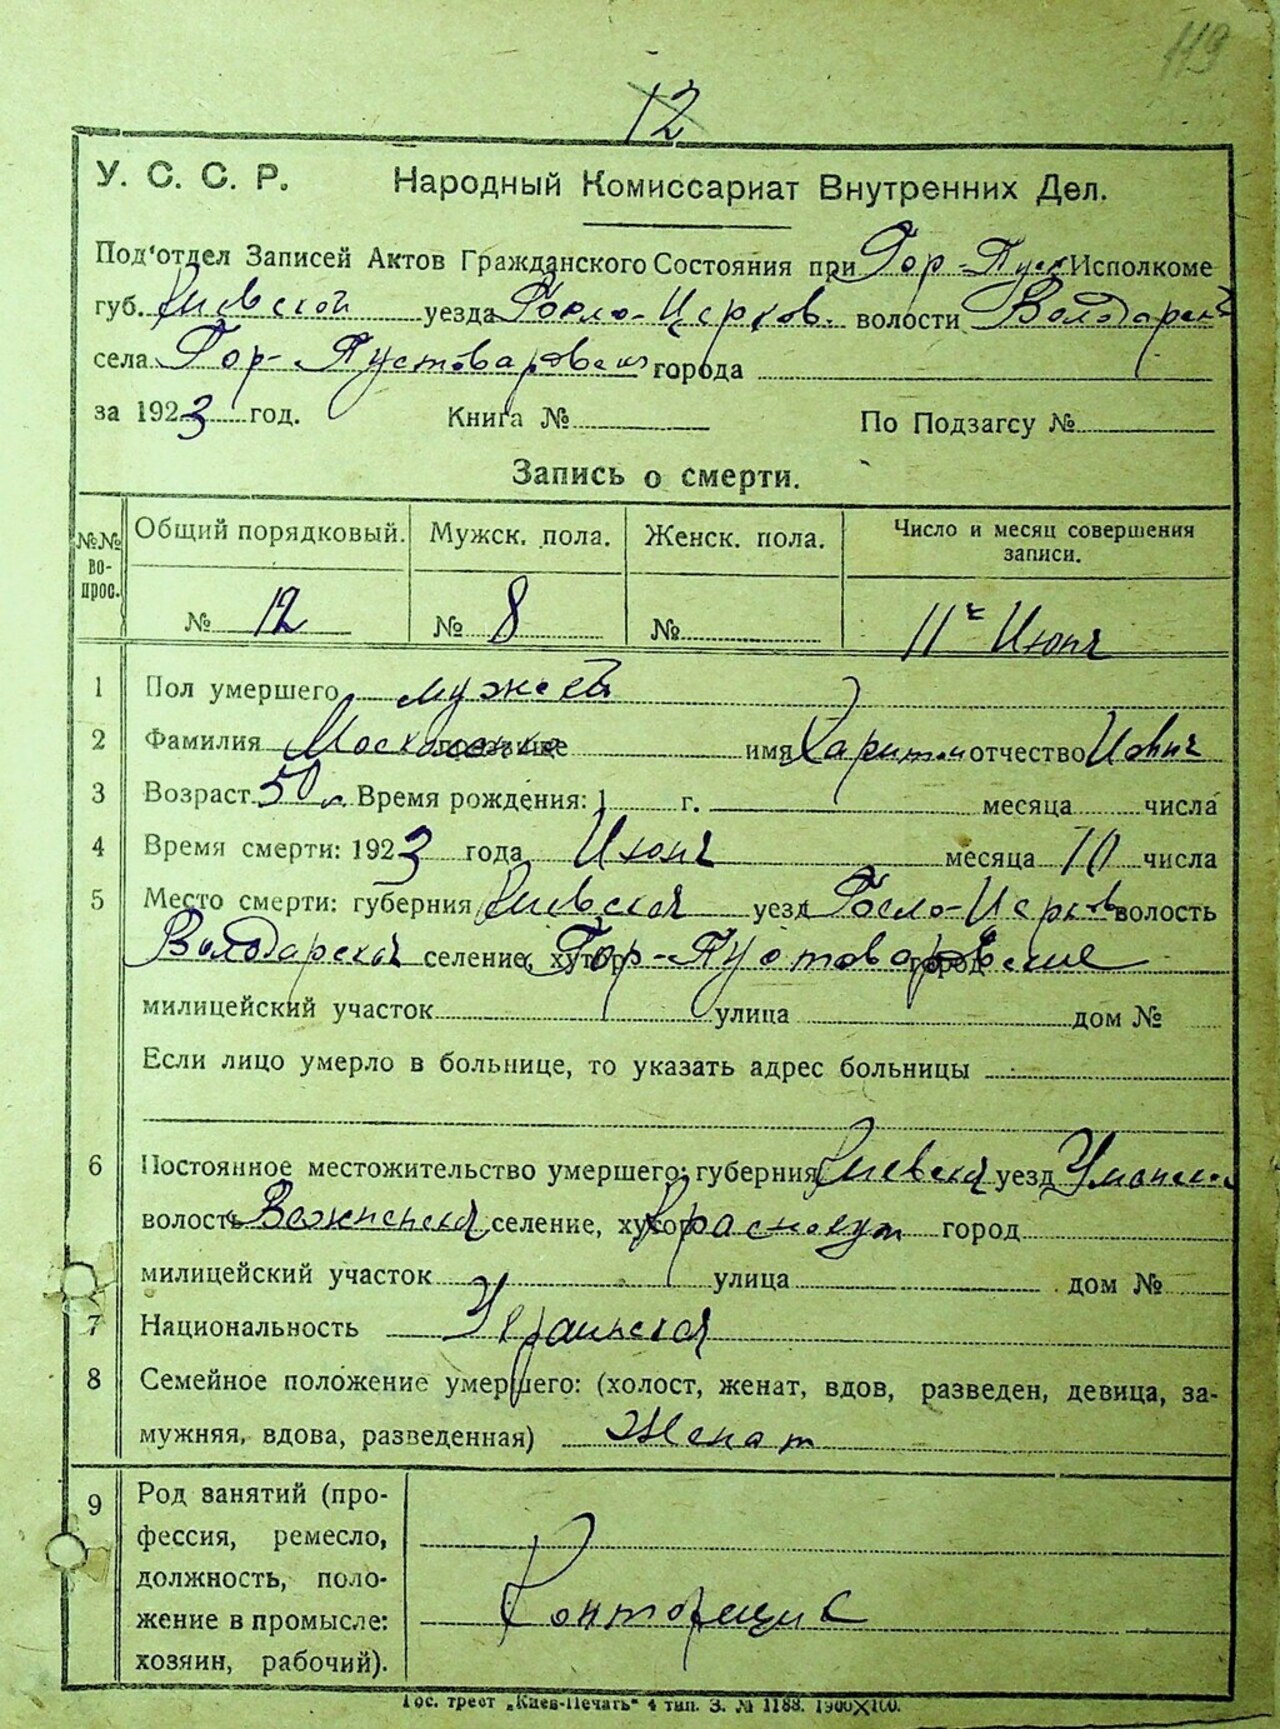 119
12
У. С. С. Р. Народный Комиссариат Внутренних Дел.
Под'отдел Записей Актов Гражданского Состояния при Гор-Пуст Исполкоме
губ. Киевской уезда Бело-Церков. волости Володарск
села Гор-Пустоваровск города
за 1923 год. Книга № По Подзагсу №
Запись о смерти.
№№ во- прос. Общий порядковый. Мужск. пола. Женск. пола. Число и месяц совершения записи.
№ 12 № 8 № 11го Июня
1 Пол умершего мужской
2 Фамилия прозвище имя Харитон отчество Иович
3 Возраст 50 л. Время рождения: 1 г. месяца числа
4 Время смерти: 1923 года Июня месяца 10 числа
5 Место смерти: губерния Киевская уезд Бело-Церков волость
Володарская селение, хутор Гор-Пустоваровские город
милицейский участок улица дом №
Если лицо умерло в больнице, то указать адрес больницы
6 Постоянное местожительство умершего: губерния Киевская уезд Уманский
волость селение, хутор Краснокут город
милицейский участок улица дом №
7 Национальность Украинская
8 Семейное положение умершего: (холост, женат, вдов, разведен, девица, за-
мужняя, вдова, разведенная) Женат
9 Род занятий (про-
фессия, ремесло,
должность, поло-
жение в промысле: Конторщик
хозяин, рабочий).
Гос. трест „Киев-Печать" 4 тип. З. № 1188. 1900×100.